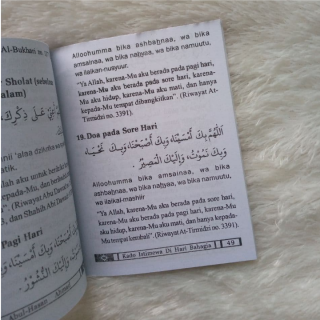 Al-Bukhari m. 2
Sholat (sebelum
alam)
Pagi Hari
Alloohumma bika ashbaḥnaa, wa bika
amsainaa, wa bika naḥyaa, wa bika namuutu,
wa ilaikan-nusyuur.
"Ya Allah, karena-Mu aku berada pada pagi hari,
karena-Mu aku berada pada sore hari, karena-
Mu aku hidup, karena-Mu aku mati, dan hanya
kepada-Mu tempat dibangkitkan" (Riwayat At-
Tirmidzi no. 3391).
19. Doa pada Sore Hari
اَللّٰهُمَّ بِكَ أَمْسَيْنَا، وَبِكَ أَصْبَحْنَا، وَبِكَ نَحْيَا،
وَبِكَ نَمُوْتُ، وَإِلَيْكَ الْمَصِيْرُ.
Alloohumma bika amsainaa, wa bika
ashbaḥnaa, wa bika naḥyaa, wa bika namuutu,
wa ilaikal-mashiir
"Ya Allah, karena-Mu aku berada pada sore hari,
karena-Mu aku berada pada pagi hari, karena-Mu
aku hidup, karena-Mu aku mati, dan hanya kepada-
Mu tempat kembali" (Riwayat At-Tirmidzi no. 3391).
Kado Istimewa Di Hari Bahagia
49